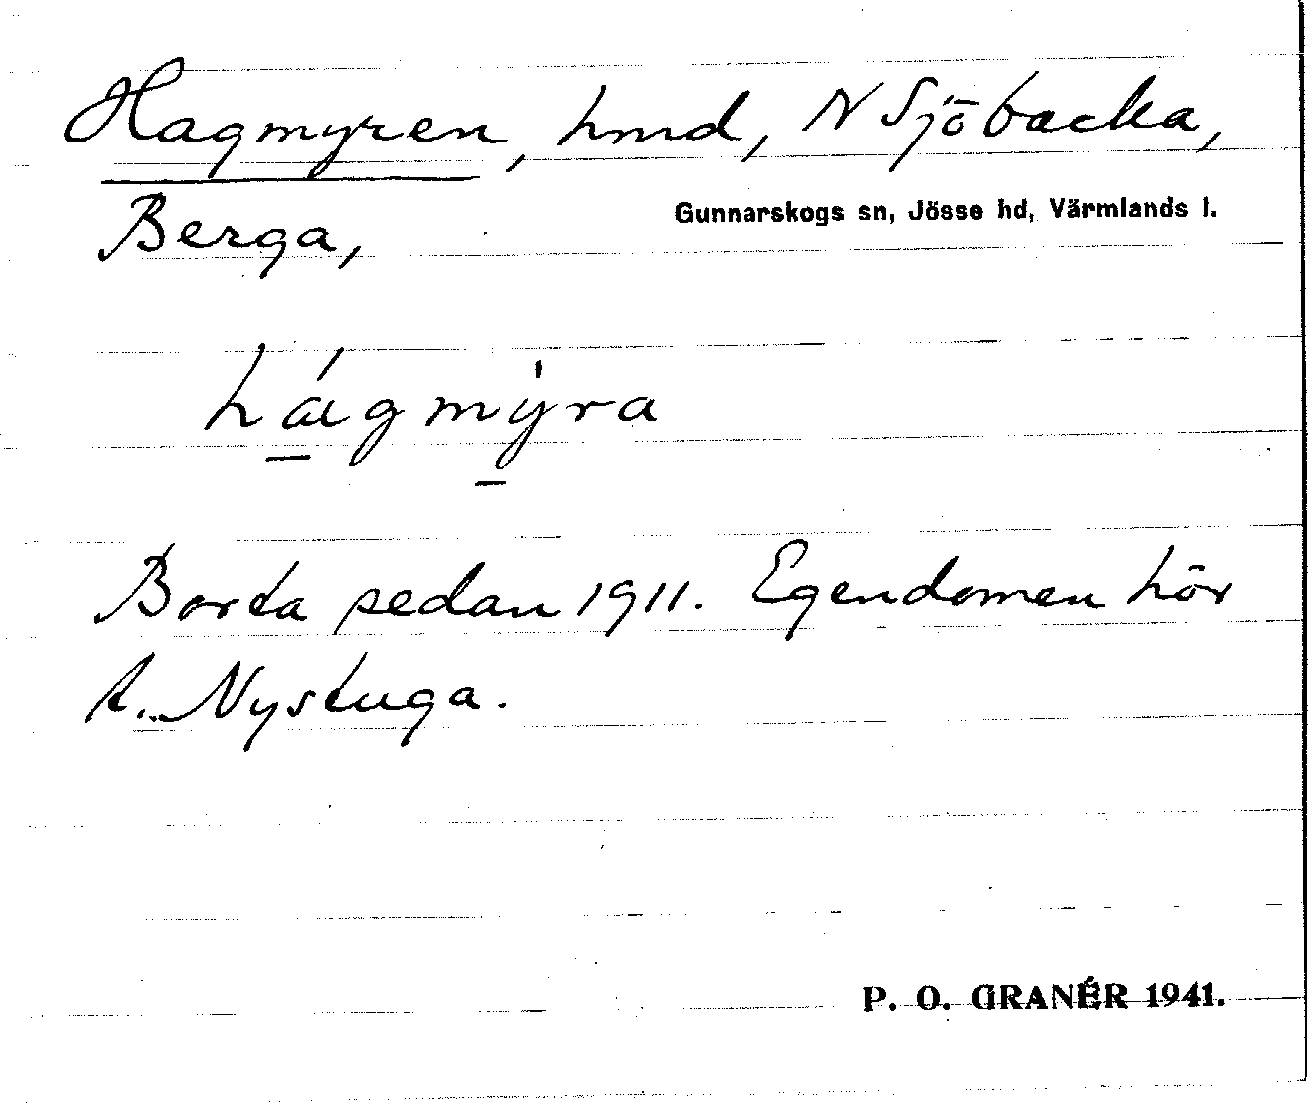 Hagmyren, hmd, N Sjöbacka,
Berga,
Gunnarskogs sn, Jösse hd, Värmlands l.
hágmýra
Borta sedan 1911. Egendomen hör
t. Nystuga.
P. O. GRANÉR 1941.